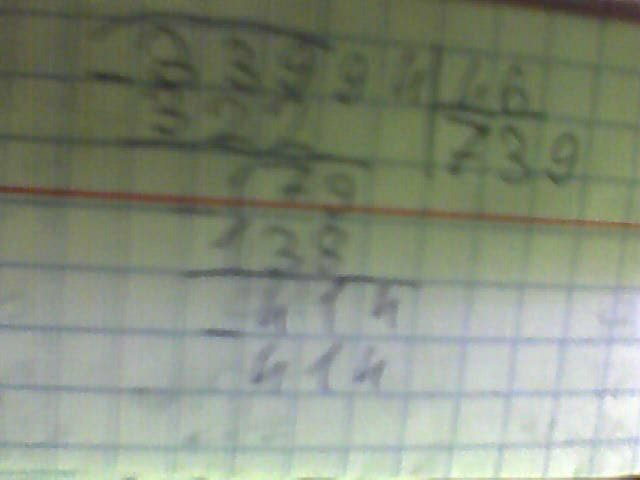 33994 46
- 322 739
179
- 138
414
- 414